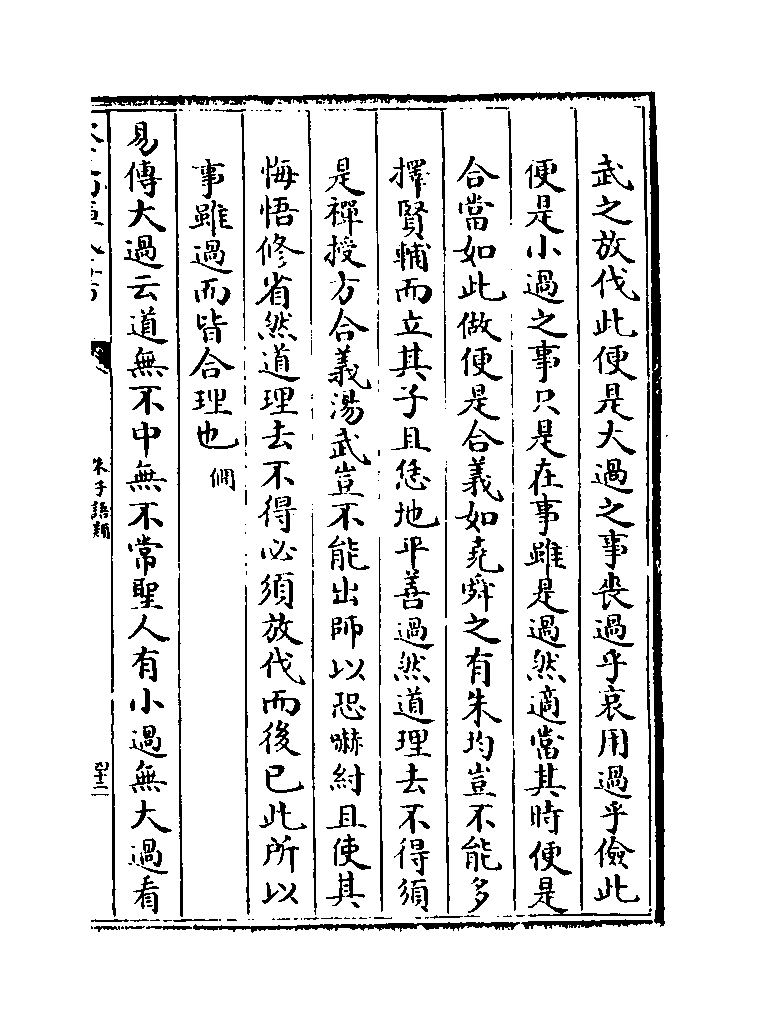 武之放伐此便是大過之事喪過乎哀用過乎儉此
便是小過之事只是在事雖是過然適當其時便是
合當如此做便是合義如堯舜之有朱均豈不能多
擇賢輔而立其子且恁地平善過然道理去不得須
是禪授方合義湯武豈不能出師以恐嚇紂且使其
悔悟修省然道理去不得必須放伐而後已此所以
事雖過而皆合理也 僩
易傳大過云道無不中無不常聖人有小過無大過看
朱子語類